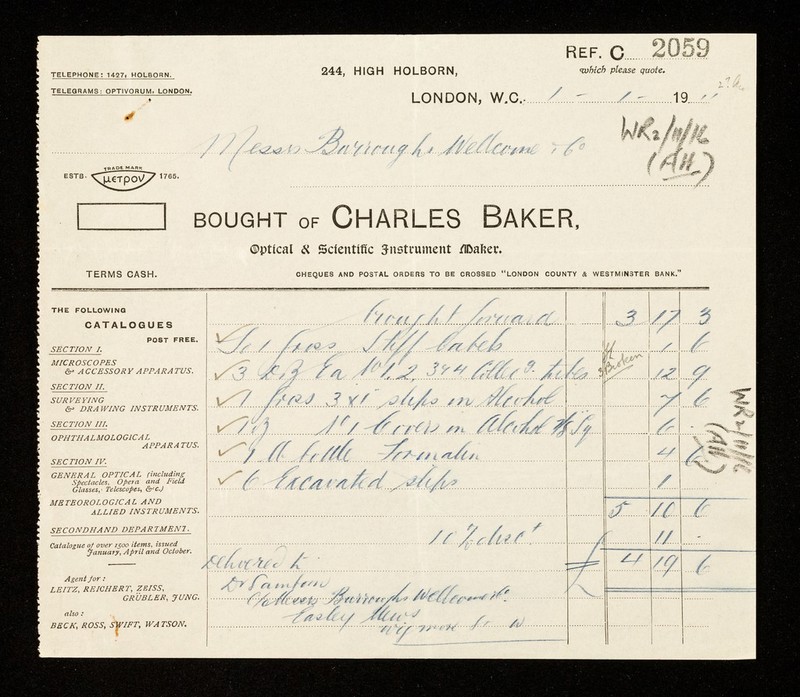 REF. C 2059
which please quote.
TELEPHONE: 1427, HOLBORN.
244, HIGH HOLBORN,
TELEGRAMS: OPTIVORUM, LONDON.
LONDON, W.C. 1 - 1 - 19 11
WR2/11/16
(AH.)
Messrs Burroughs Wellcome & Co
TRADE MARK
ESTB. μετρον 1765.
BOUGHT OF CHARLES BAKER,
Optical & Scientific Instrument Maker.
TERMS CASH.
CHEQUES AND POSTAL ORDERS TO BE CROSSED "LONDON COUNTY & WESTMINSTER BANK."
THE FOLLOWING
CATALOGUES
POST FREE.
SECTION I.
MICROSCOPES
& ACCESSORY APPARATUS.
SECTION II.
SURVEYING
& DRAWING INSTRUMENTS.
SECTION III.
OPHTHALMOLOGICAL
APPARATUS.
SECTION IV.
GENERAL OPTICAL (including
Spectacles, Opera and Field
Glasses, Telescopes, &c.)
METEOROLOGICAL AND
ALLIED INSTRUMENTS.
SECONDHAND DEPARTMENT.
Catalogue of over 1500 items, issued
January, April and October.
Agent for:
LEITZ, REICHERT, ZEISS,
GRÜBLER, JUNG.
also:
BECK, ROSS, SWIFT, WATSON.
brought forward 3 17 3
To 1 gross Stiff labels 1 6
3 Dz Ea No 1, 2, 3 & 4 Collecg. tubes 3 Broken 12 9
1 gross 3 x 1 slips in Alcohol 7 6
No 1 Covers in Alcohol 7/8 Sq 6 -
1 lb bottle Formalin 4 6
6 Excavated slips 1
5 10 6
10 % disct 11 -
£ 4 19 6
Delivered to
Dr Sambon
c/o Messrs Burroughs Wellcome & Co
Easley Mews
Wigmore St W
WR2/11/16
(AH)